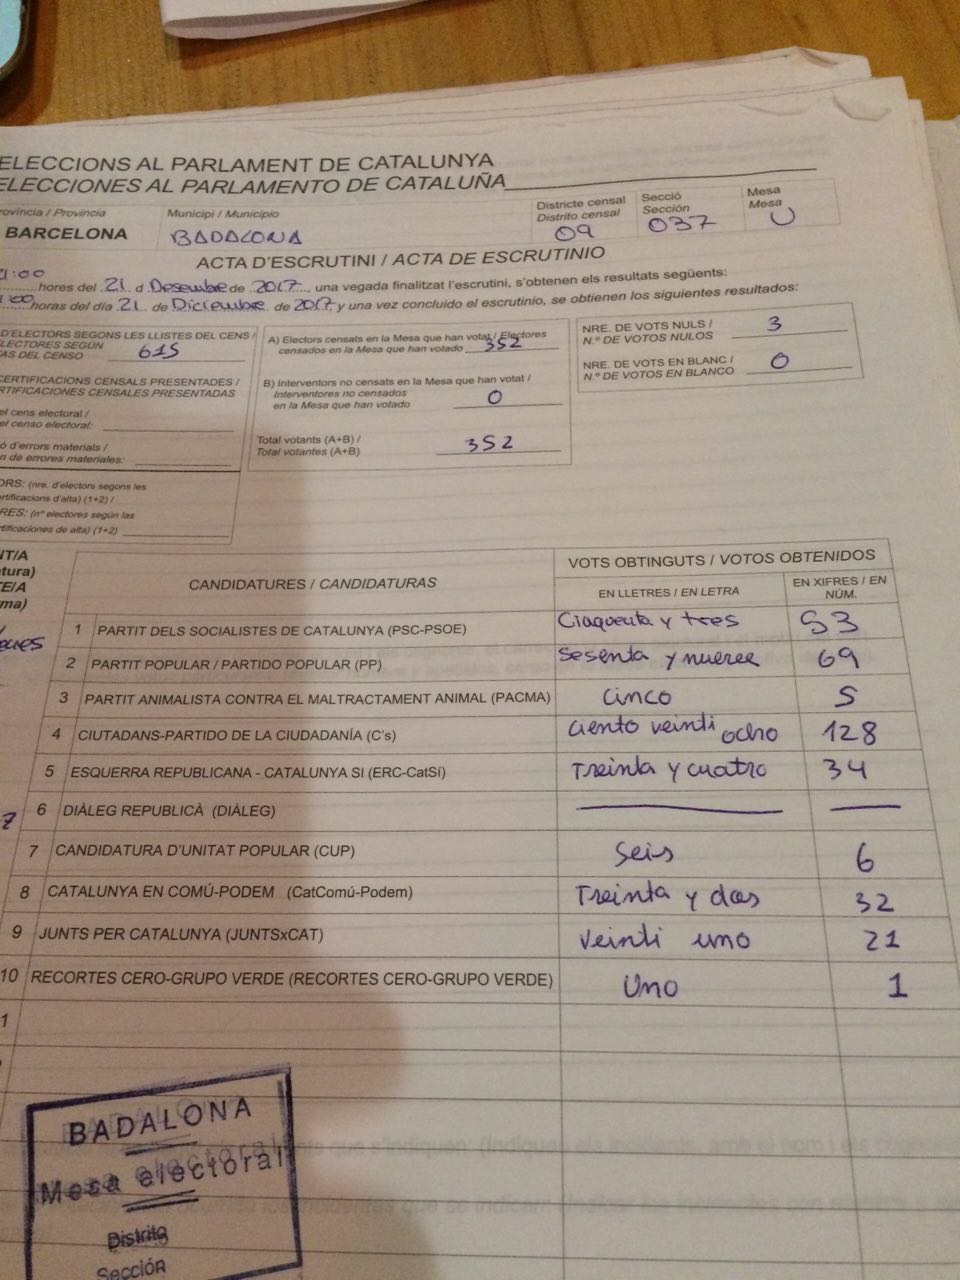 ELECCIONS AL PARLAMENT DE CATALUNYA
ELECCIONES AL PARLAMENTO DE CATALUÑA
rovíncia / Provincia
BARCELONA
Municipi / Municipio
BADALONA
Districte censal
Distrito censal
09
Secció
Sección
037
Mesa
Mesa
U
ACTA D'ESCRUTINI / ACTA DE ESCRUTINIO
hores del 21 d Desembre de 2017, una vegada finalitzat l'escrutini, s'obtenen els resultats següents:
horas del día 21 de Diciembre de 2017 y una vez concluido el escrutinio, se obtienen los siguientes resultados:
D'ELECTORS SEGONS LES LLISTES DEL CENS /
LECTORES SEGÚN
AS DEL CENSO 615
CERTIFICACIONS CENSALS PRESENTADES /
RTIFICACIONES CENSALES PRESENTADAS
el cens electoral /
el censo electoral:
ó d'errors materials /
n de errores materiales:
ORS: (nre. d'electors segons les
ertificacions d'alta) (1+2) /
RES: (nº electores según las
rtificaciones de alta) (1+2)
A) Electors censats en la Mesa que han votat / Electores
censados en la Mesa que han votado 352
B) Interventors no censats en la Mesa que han votat /
Interventores no censados
en la Mesa que han votado 0
Total votants (A+B) /
Total votantes (A+B) 352
NRE. DE VOTS NULS /
N.º DE VOTOS NULOS 3
NRE. DE VOTS EN BLANC /
N.º DE VOTOS EN BLANCO 0
NT/A
tura)
TE/A
ma)
CANDIDATURES / CANDIDATURAS
VOTS OBTINGUTS / VOTOS OBTENIDOS
EN LLETRES / EN LETRA
EN XIFRES / EN
NÚM.
1 PARTIT DELS SOCIALISTES DE CATALUNYA (PSC-PSOE) Cinquenta y tres 53
2 PARTIT POPULAR / PARTIDO POPULAR (PP) Sesenta y nueve 69
3 PARTIT ANIMALISTA CONTRA EL MALTRACTAMENT ANIMAL (PACMA) Cinco 5
4 CIUTADANS-PARTIDO DE LA CIUDADANÍA (C's) Ciento veinti ocho 128
5 ESQUERRA REPUBLICANA - CATALUNYA SI (ERC-CatSí) Treinta y cuatro 34
6 DIÀLEG REPUBLICÀ (DIÀLEG)
7 CANDIDATURA D'UNITAT POPULAR (CUP) Seis 6
8 CATALUNYA EN COMÚ-PODEM (CatComú-Podem) Treinta y dos 32
9 JUNTS PER CATALUNYA (JUNTSxCAT) Veinti uno 21
10 RECORTES CERO-GRUPO VERDE (RECORTES CERO-GRUPO VERDE) Uno 1
1
BADALONA
Mesa electoral
Distrito
Sección